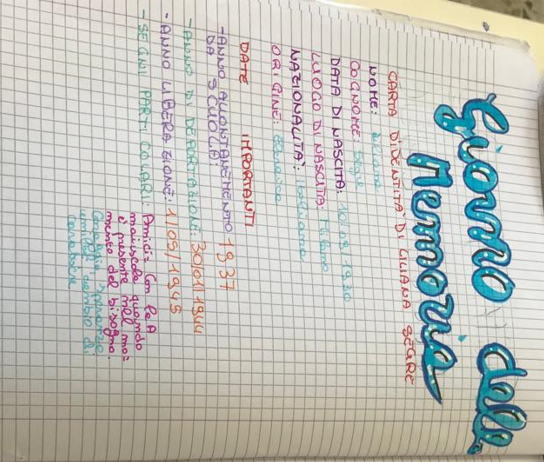 Giorno della
Memoria
CARTA D'IDENTITA' DI LILIANA SEGRE
NOME: Liliana
COGNOME: Segre
DATA DI NASCITA: 10/09/1930
LUOGO DI NASCITA: Milano
NAZIONALITA': italiana
ORIGINE: Ebraica
DATE IMPORTANTI
-ANNO ALLONTANEMENTO 1937
DA SCUOLA:
-ANNO DI DEPORTAZIONE: 30/01/1944
-ANNO LIBERAZIONE: 1/05/1945
-SEGNI PARTICOLARI: Amidia con la A
maiuscola quando
è presente nel mo=
mento del bisogno.